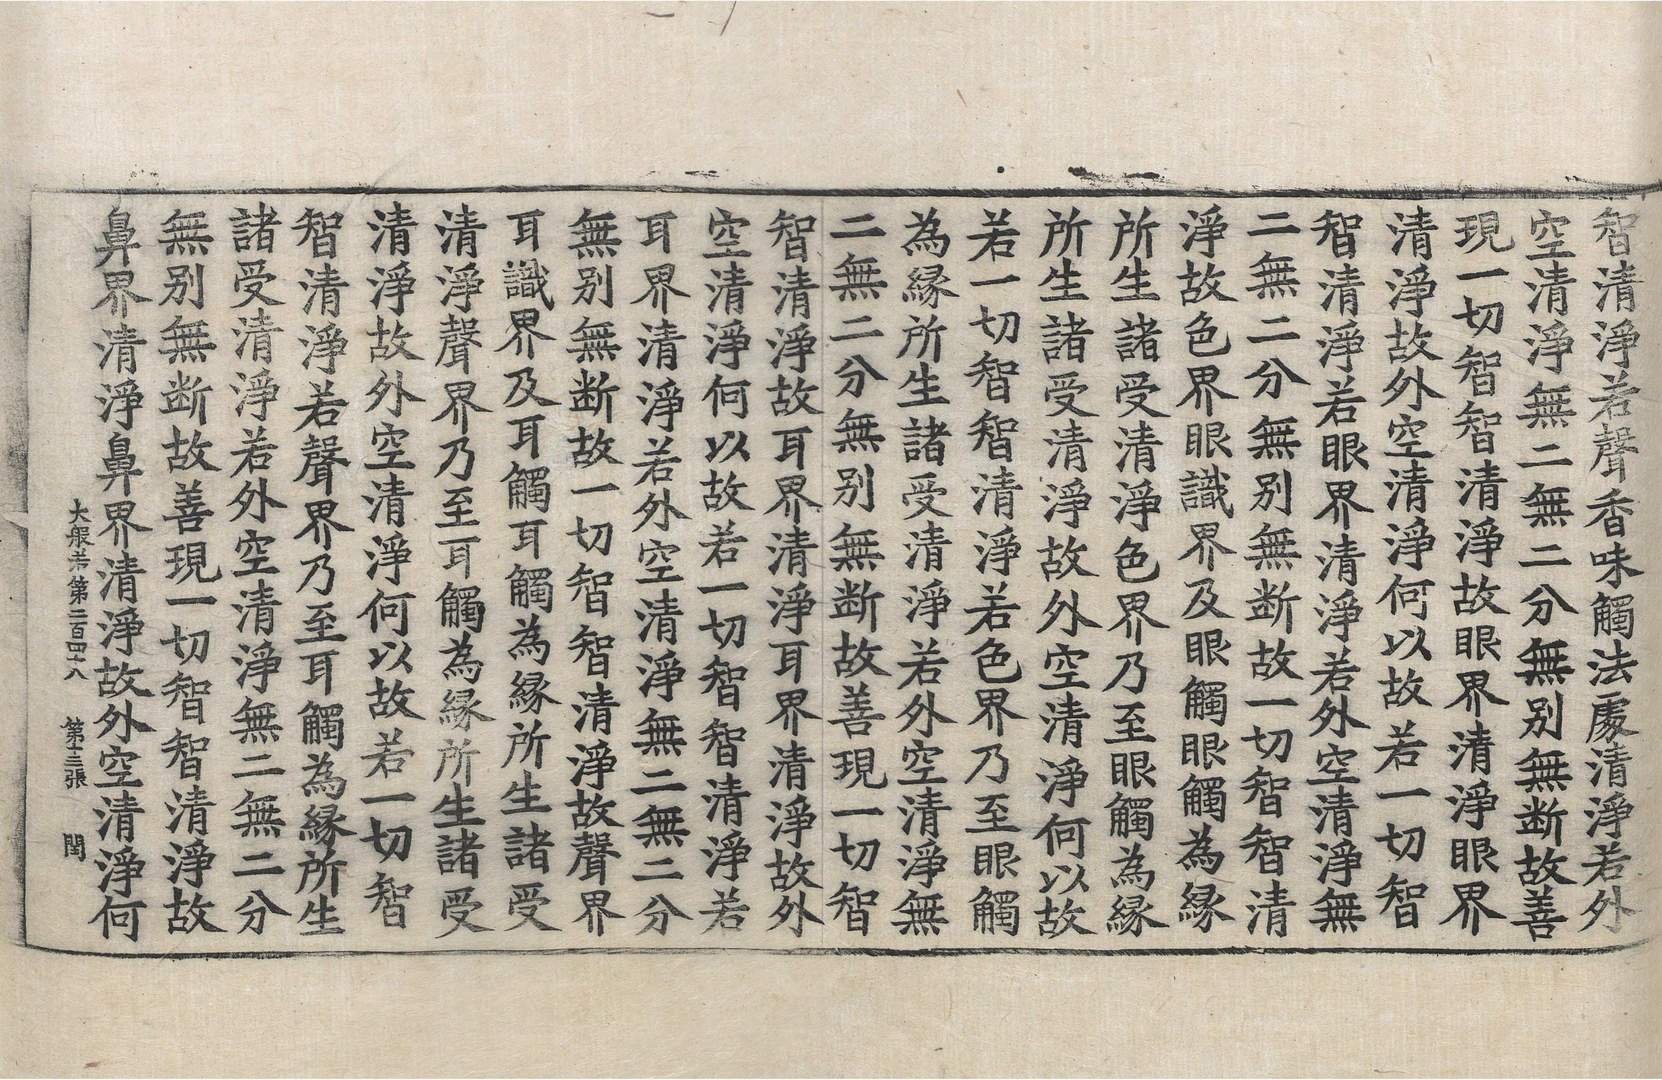 智清淨若聲香味觸法處清淨若外
空清淨無二無二分無別無断故善
現一切智智清淨故眼界清淨眼界
清淨故外空清淨何以故若一切智
智清淨若眼界清淨若外空清淨無
二無二分無別無断故一切智智清
淨故色界眼識界及眼觸眼觸為縁
所生諸受清淨色界乃至眼觸為縁
所生諸受清淨故外空清淨何以故
若一切智智清淨若色界乃至眼觸
為縁所生諸受清淨若外空清淨無
二無二分無别無断故善現一切智
智清淨故耳界清淨耳界清淨故外
空清淨何以故若一切智智清淨若
耳界清淨若外空清淨無二無二分
無别無断故一切智智清淨故聲界
耳識界及耳觸耳觸為縁所生諸受
清淨聲界乃至耳觸為縁所生諸受
清淨故外空清淨何以故若一切智
智清淨若聲界乃至耳觸為縁所生
諸受清淨若外空清淨無二無二分
無别無断故善現一切智智清淨故
鼻界清淨鼻界清淨故外空清淨何
大般若第二百四十八 第十三張 閏